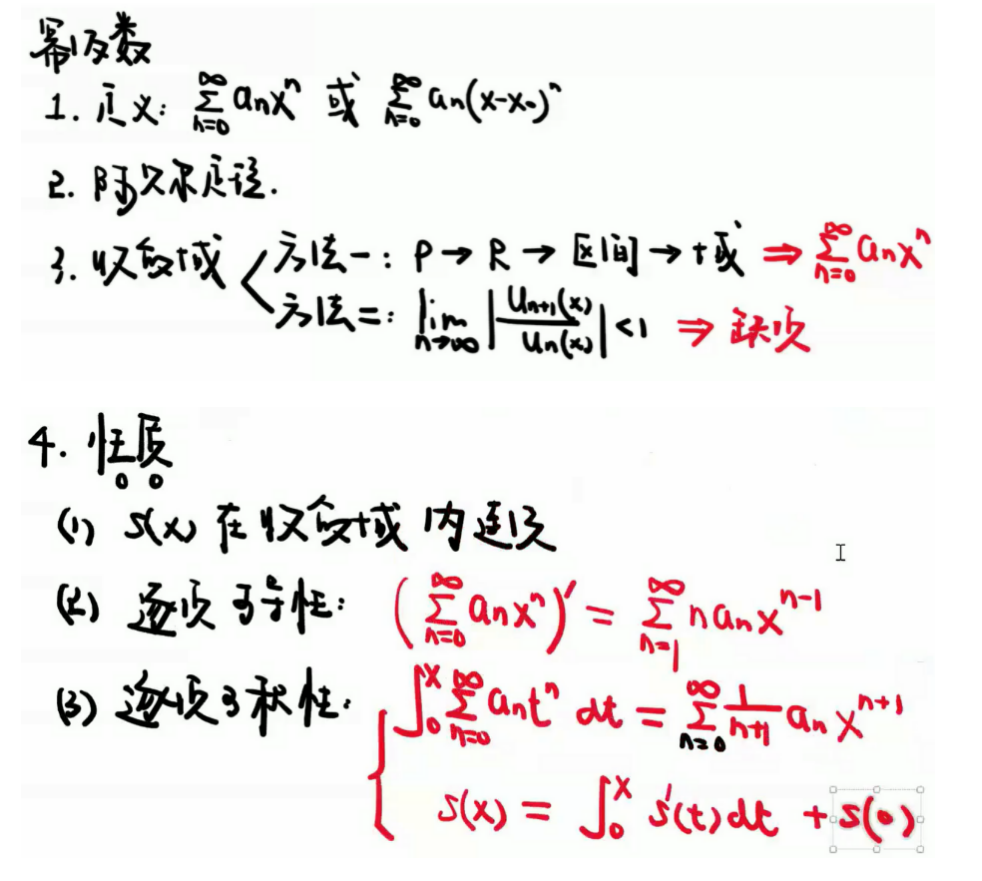 幂级数
1. 定义: ∑_{n=0}^{∞} aₙxⁿ 或 ∑_{n=0}^{∞} aₙ(x-x₀)ⁿ
2. 阿贝尔定理.
3. 收敛域
方法一: ρ → R → 区间 → 域 ⇒ ∑_{n=0}^{∞} aₙxⁿ
方法二: lim_{n→∞} |uₙ₊₁(x)/uₙ(x)| <1 ⇒ 缺项
4. 性质
(1) S(x) 在收敛域内连续
(2) 逐项可导性: (∑_{n=0}^{∞} aₙxⁿ)′ = ∑_{n=1}^{∞} n aₙ x^{n-1}
(3) 逐项可积性: ∫₀ˣ ∑_{n=0}^{∞} aₙtⁿ dt = ∑_{n=0}^{∞} 1/(n+1) aₙ x^{n+1}
S(x) = ∫₀ˣ S′(t)dt + S(0)